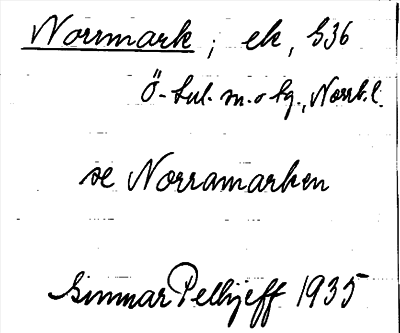 Norrmark; ek, S36
Ö-Lul. sn. o kg., Norrb. l.
se Norramarken
Gunnar Pellijeff 1935